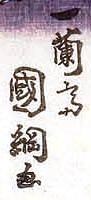 一蘭齋
國綱画